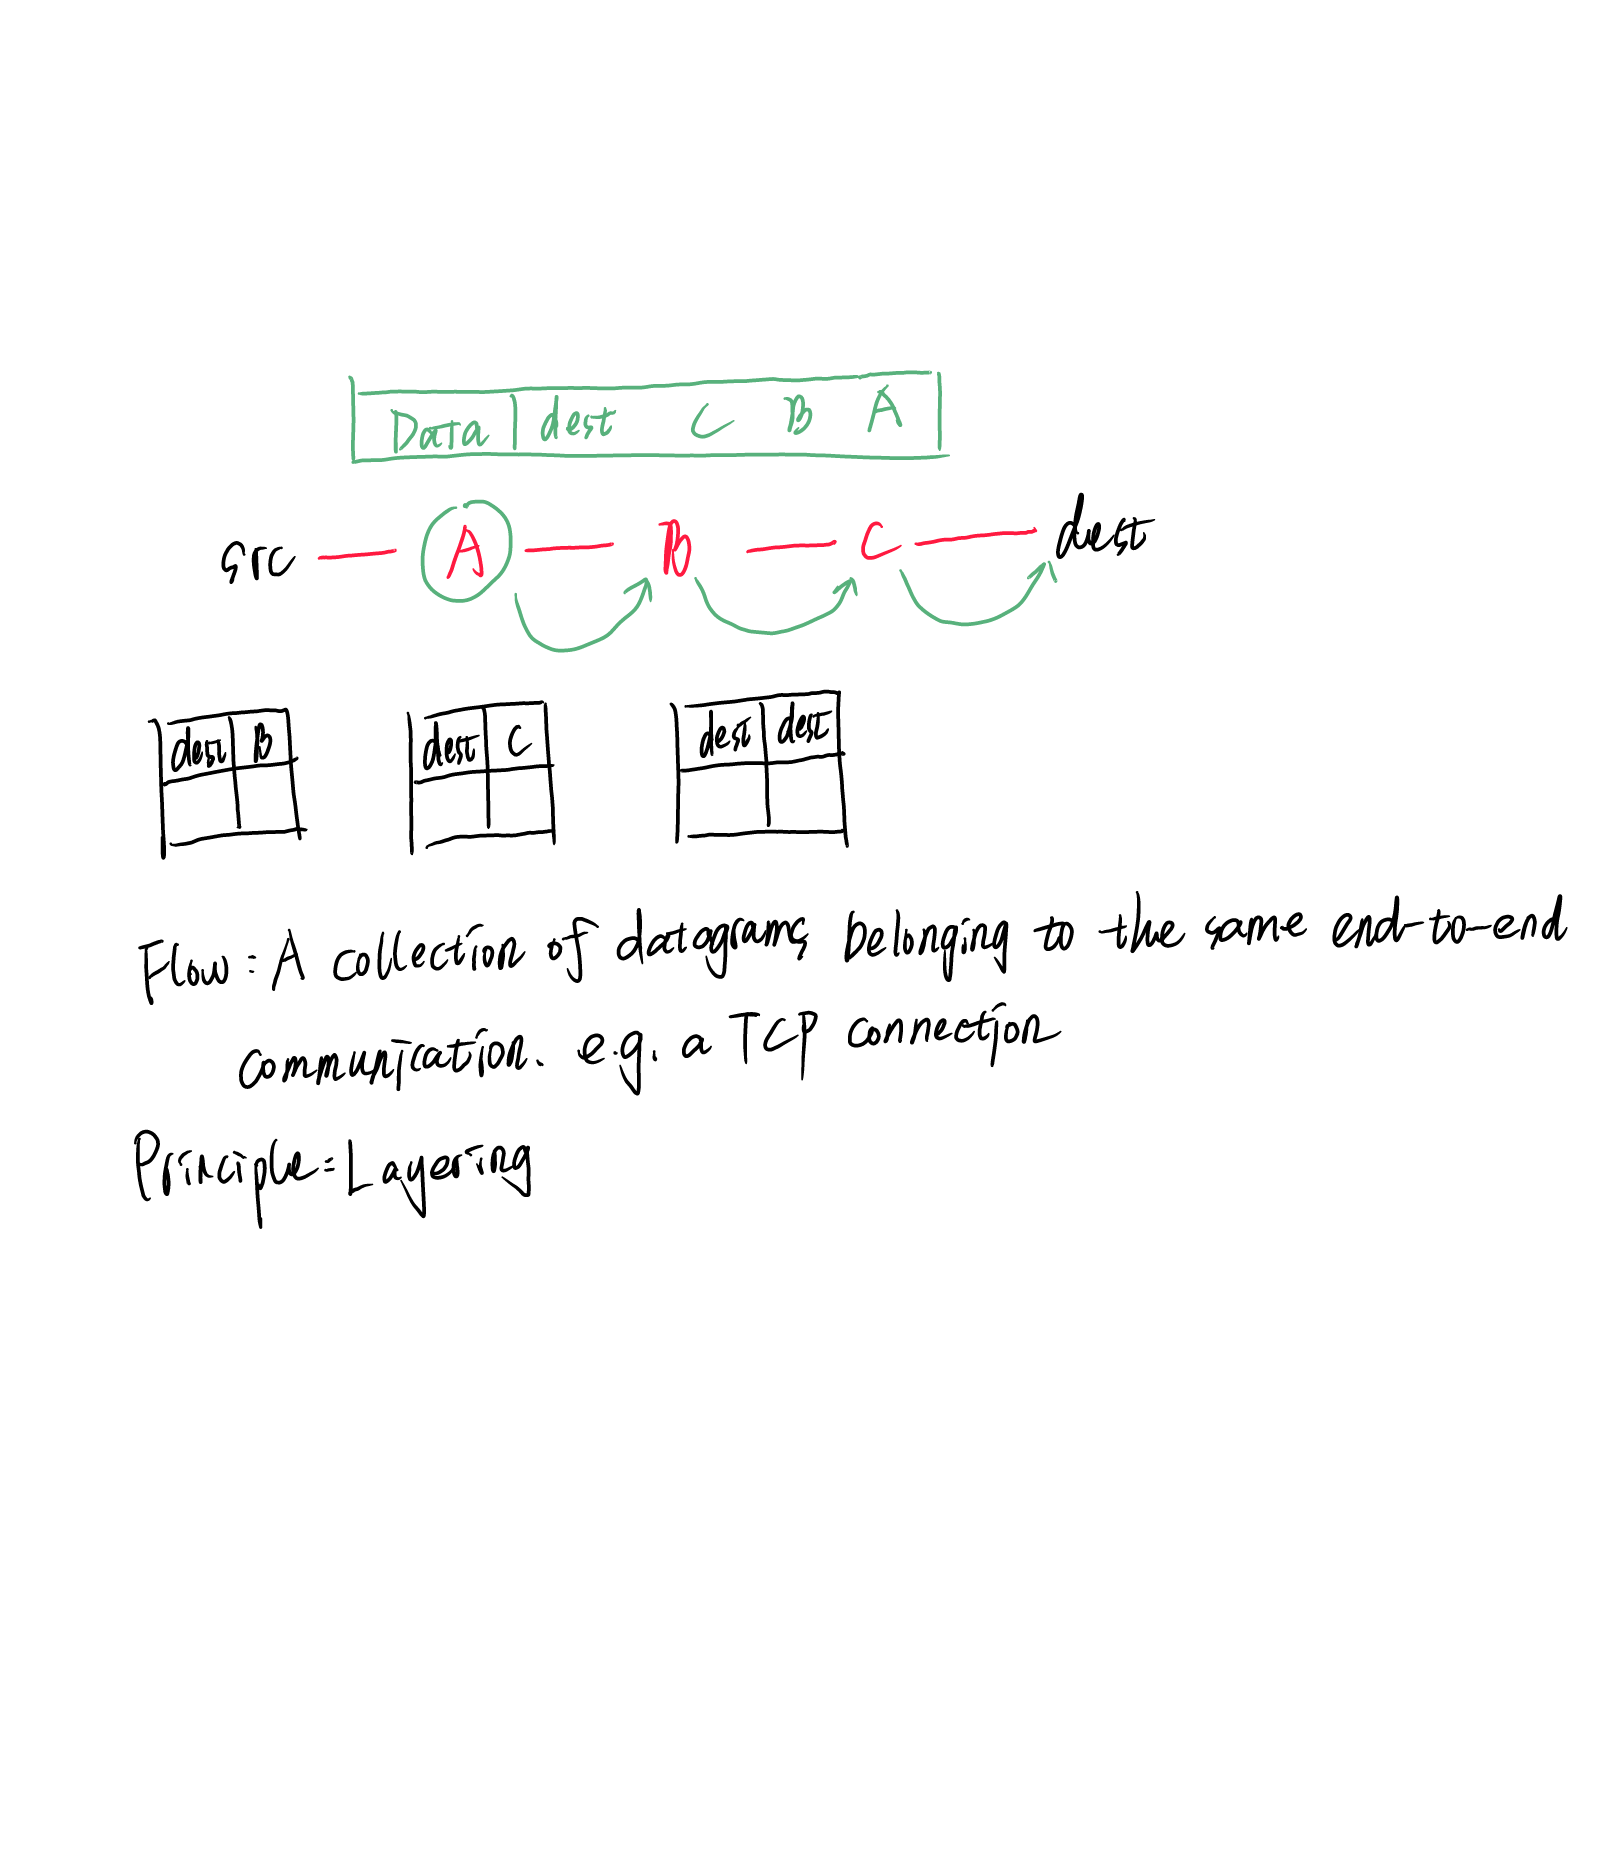 Data dest C B A
src A B C dest
dest B dest C dest dest
Flow: A collection of datagrams belonging to the same end-to-end
communication. e.g. a TCP connection
Principle: Layering